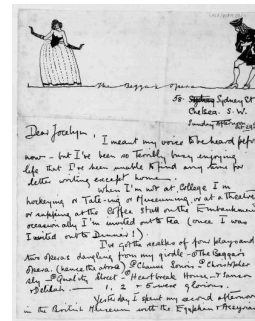 The Beggars Opera
58. Sydney Sydney St
Chelsea. S.W.
Sunday afternoon
Dear Jocelyn,
I meant my voice to be heard before
now - but I've been so terribly busy enjoying
life that I've been unable to find any time for
letter writing except home.
When I'm not at College I'm
hockeying or Talk-ing or Museuming, or at a theatre
or supping at the Coffee Stall on the Embankment
occasionally I'm invited out to tea (once I was
invited out to Dinner!)
I've got the scalps of four plays and
two operas dangling from my girdle - The Beggar's
Opera. (hence the above) Christopher
Sly Quality Street - Heartbreak House, Samson
& Delilah. 1, 2 & 5 were glorious.
Yesterday I spent my second afternoon
in the British Museum with the Egyptian & Assyrian